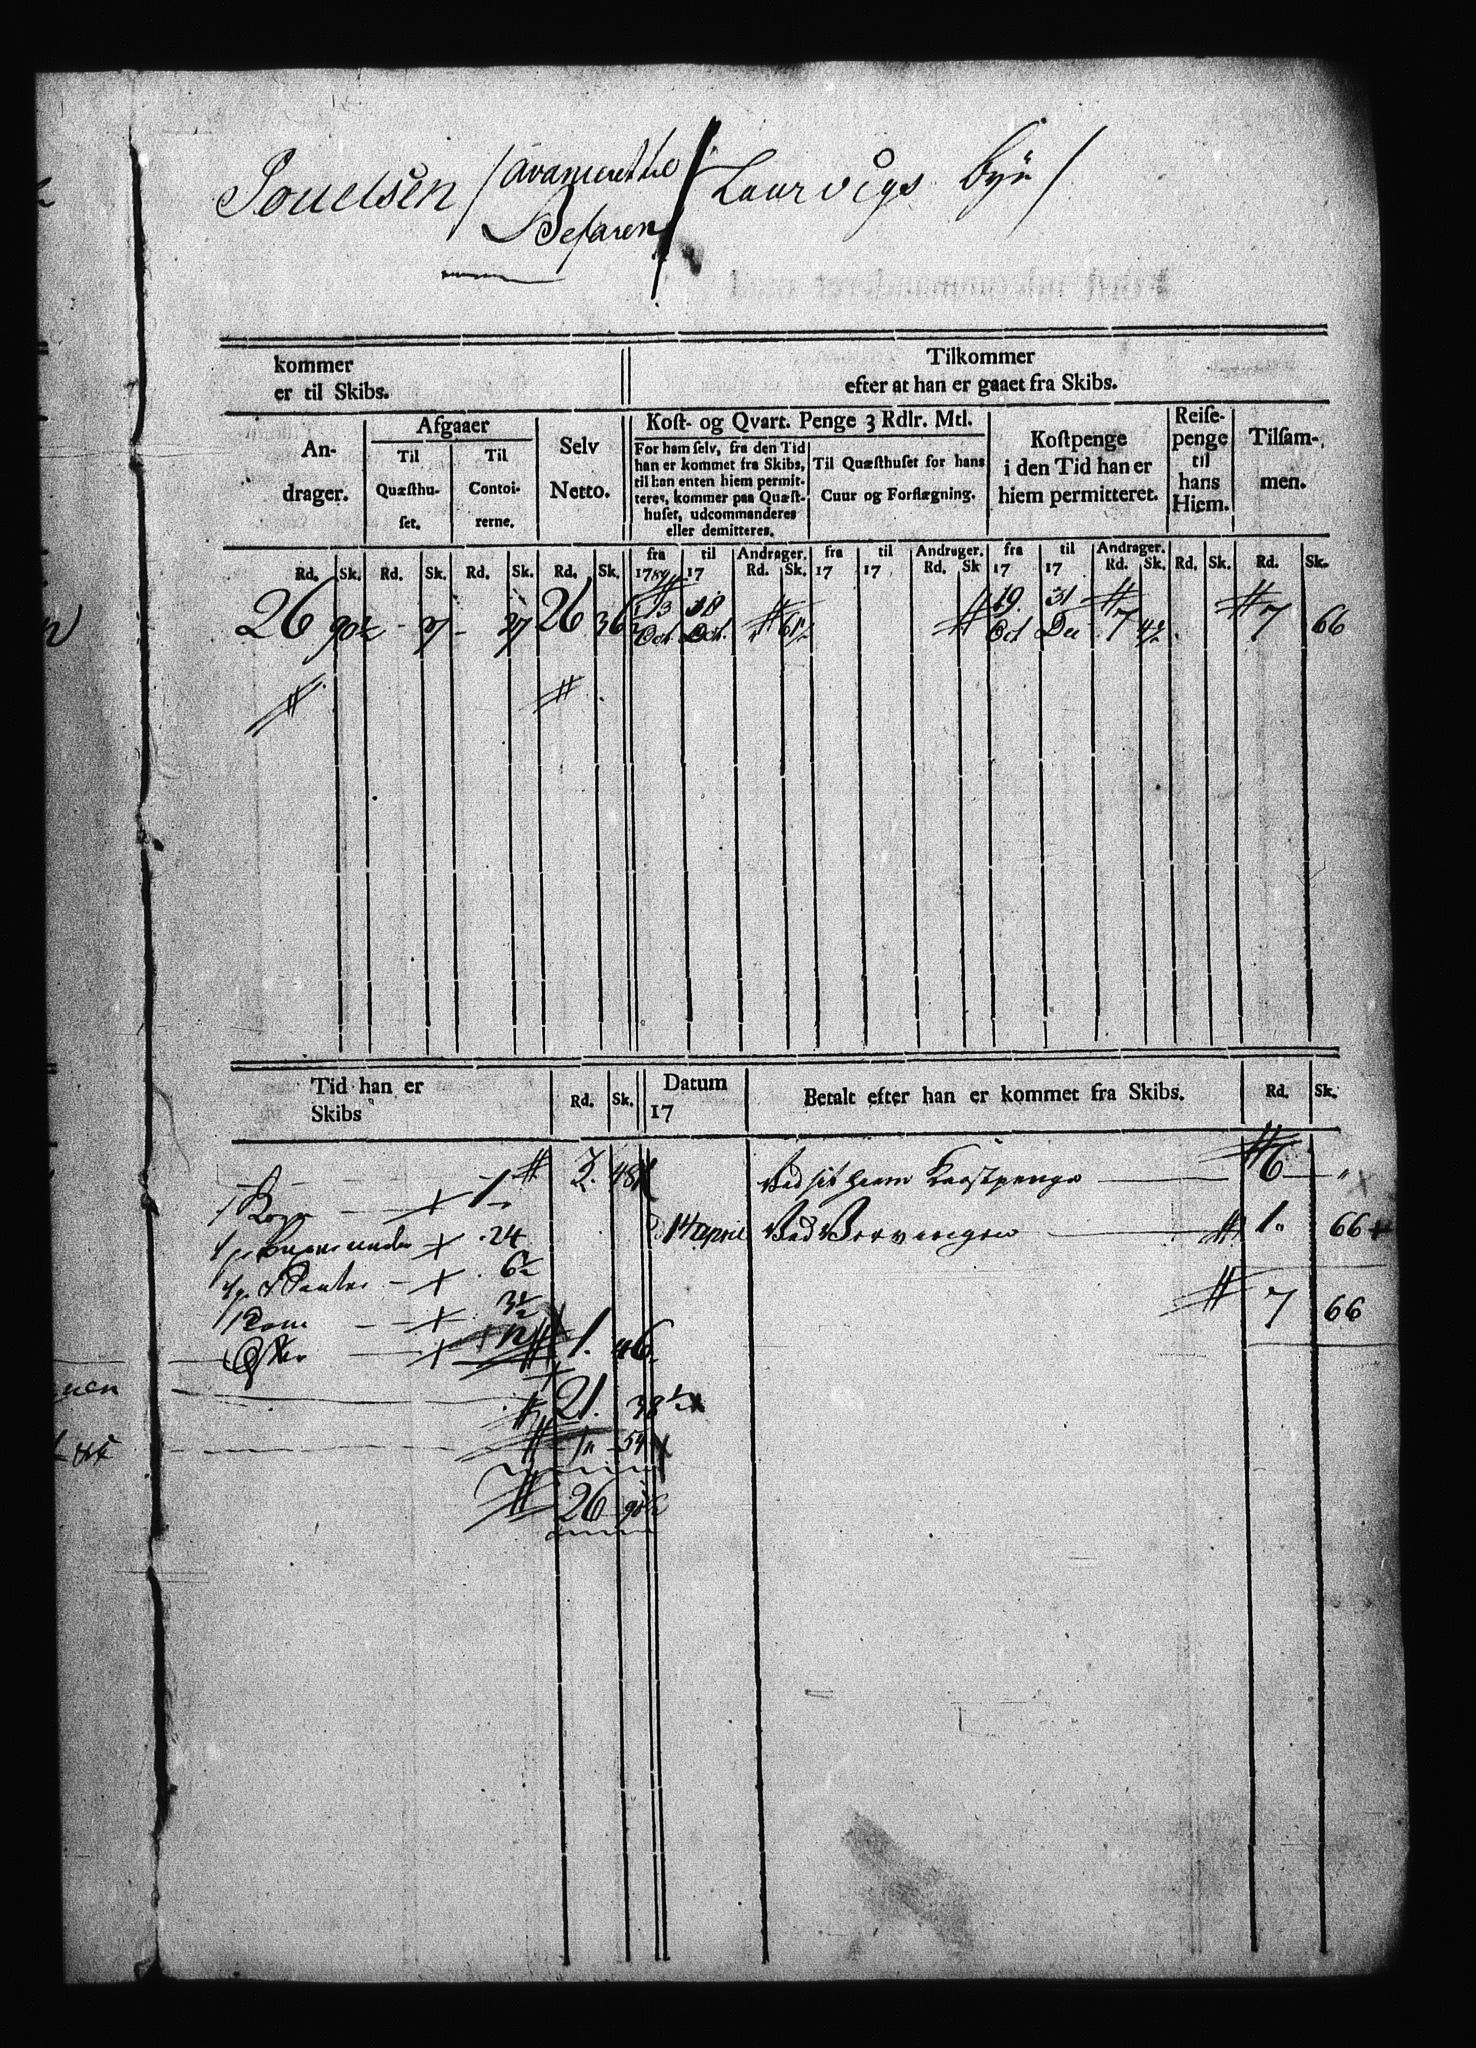 Pouelsen / avanceret til / Laurvigs bye /
Befaren
kommer
er til Skibs.
Tilkommer
efter at han er gaaet fra Skibs.
An-
drager.
Afgaaer
Til
Quæsthu-
set.
Til
Contoi-
rerne.
Selv
Netto.
Kost- og Qvart. Penge 3 Rdlr. Mtl.
For ham selv, fra den Tid
han er kommet fra Skibs,
til han enten hiem permit-
teres, kommer paa Quæst-
huset, udcommanderes
eller demitteres.
Til Quæsthuset for hans
Cuur og Forflægning.
Kostpenge
i den Tid han er
hiem permitteret.
Reise-
penge
til
hans
Hiem.
Tilsam-
men.
fra til Andrager. fra til Andrager. fra til Andrager.
Rd. Sk. Rd. Sk. Rd. Sk. Rd. Sk. 1789 17 Rd. Sk. 17 17 Rd. Sk 17 17 Rd. Sk. Rd. Sk. Rd. Sk.
26 90½ - 27 - 27 26 36½ 13 Oct. 18 Oct. 61½ 19 Oct 31 De 7 4½ 7 66
Tid han er
Skibs
Rd. Sk.
Datum
17
Betalt efter han er kommet fra Skibs.
Rd. Sk.
48
Ved sit hiem Kostpenge 6 "
1 - 1
14 april Ved 1 66
24
6½
7 66
3½
1. 46
21. 38½
54
26 90½